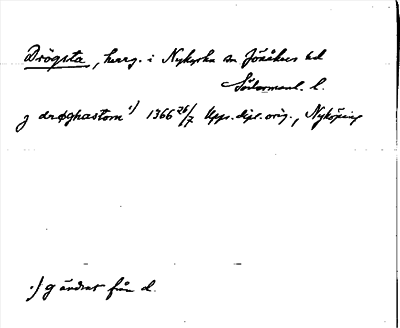 Drögsta, herrg. i Nykyrka sn Jönåkers hd
Södermanl. l.
j drøghastom ¹) 1366 26/7 Upps. dipl. orig., Nyköping
¹) g ändrat från d.